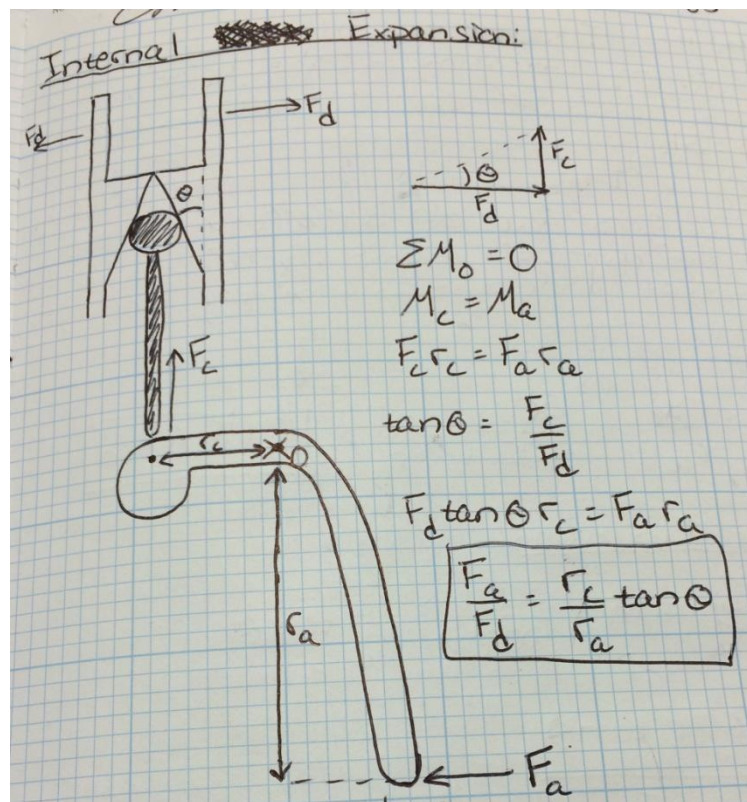 Internal Expansion:
Fd
Fd
θ
Fc
θ
Fd
ΣMo = 0
Mc = Ma
Fc rc = Fa ra
Fc
tanθ = Fc/Fd
rc
O
Fd tanθ rc = Fa ra
Fa/Fd = rc/ra tanθ
ra
Fa